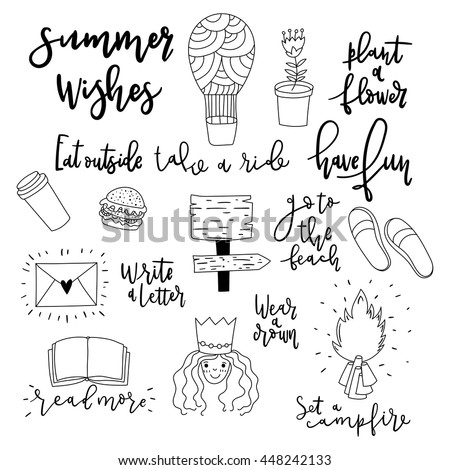 summer
Wishes
plant
a
flower
Eat outside
take a ride
have fun
go to
the
beach
Write
a letter
Wear
a
crown
read more
Set a
campfire
shutterstock
IMAGE ID: 448242133
www.shutterstock.com